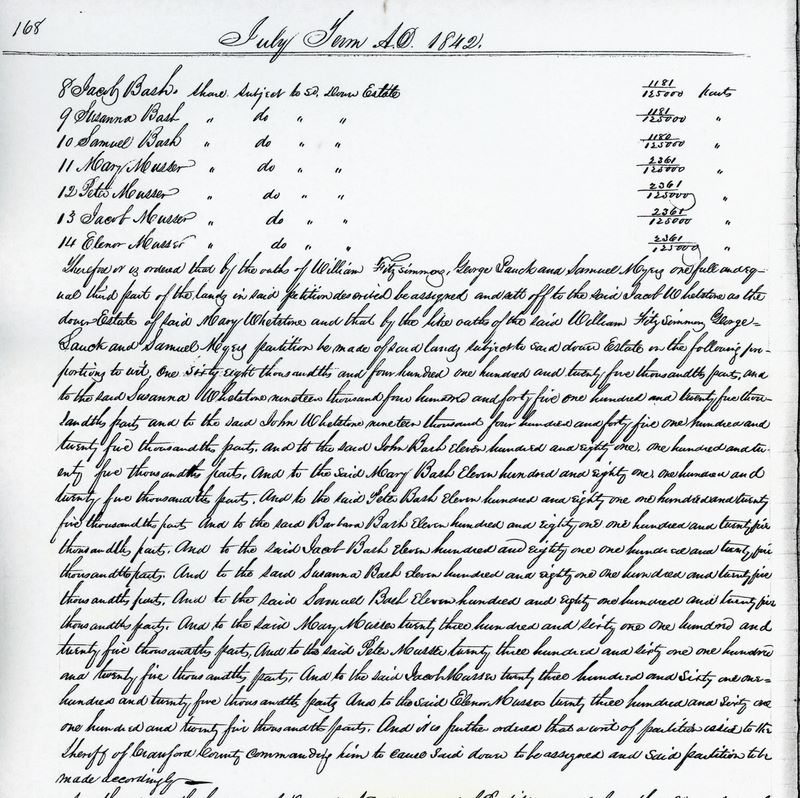 168
July Term A.D. 1842.
8 Jacob Bash. share subject to sd. Dower Estate 1181/125000 parts
9 Susanna Bash " do " " 1181/125000 "
10 Samuel Bash " do " " 1180/125000 "
11 Mary Musser " do " " 2361/125000 "
12 Peter Musser do " " 2361/125000 "
13 Jacob Musser " do " " 2361/125000 "
14 Elenor Musser " do " " 2361/125000 "
Therefore it is ordered that by the oaths of William Fitzsimmons, George Lauck and Samuel Myers one full and eq-
ual third part of the lands in said petition described be assigned and sett off to the said Jacob Whetstone as the
dower Estate of said Mary Whetstone and that by the like oaths of the said William Fitzsimmons George
Lauck and Samuel Myers partition be made of said lands subject to said dower Estate in the following pro-
portions to wit, One sixty eight thousandths and four hundred one hundred and twenty five thousandths parts, and
to the said Susanna Whetstone nineteen thousand four hundred and forty five one hundred and twenty five thou-
sandths parts and to the said John Whetstone nineteen thousand four hundred and forty five one hundred and
twenty five thousandths parts. And to the said John Bash Eleven hundred and eighty one, one hundred and tw-
enty five thousandths parts. And to the said Mary Bash Eleven hundred and eighty one, one hundred and
twenty five thousandths parts, And to the said Peter Bash Eleven hundred and eighty one one hundred and twenty
five thousandths parts And to the said Barbara Bash Eleven hundred and eighty one one hundred and twenty five
thousandths parts. And to the said Jacob Bash Eleven hundred and eighty one one hundred and twenty five
thousandths parts. And to the said Susanna Bash Eleven hundred and eighty one one hundred and twenty five
thousandths parts. And to the said Samuel Bash Eleven hundred and Eighty one hundred and twenty five
thousandths parts. And to the said Mary Musser twenty three hundred and sixty one one hundred and
twenty five thousandths parts, And to the said Peter Musser twenty three hundred and sixty one one hundred
and twenty five thousandths parts, And to the said Jacob Musser twenty three hundred and sixty one one-
hundred and twenty five thousandths parts And to the said Elenor Musser twenty three hundred and sixty one
one hundred and twenty five thousandths parts. And it is further ordered that a writ of partition issue to the
Sheriff of Crawford County commanding him to cause said dower to be assigned and said partition to be
made accordingly